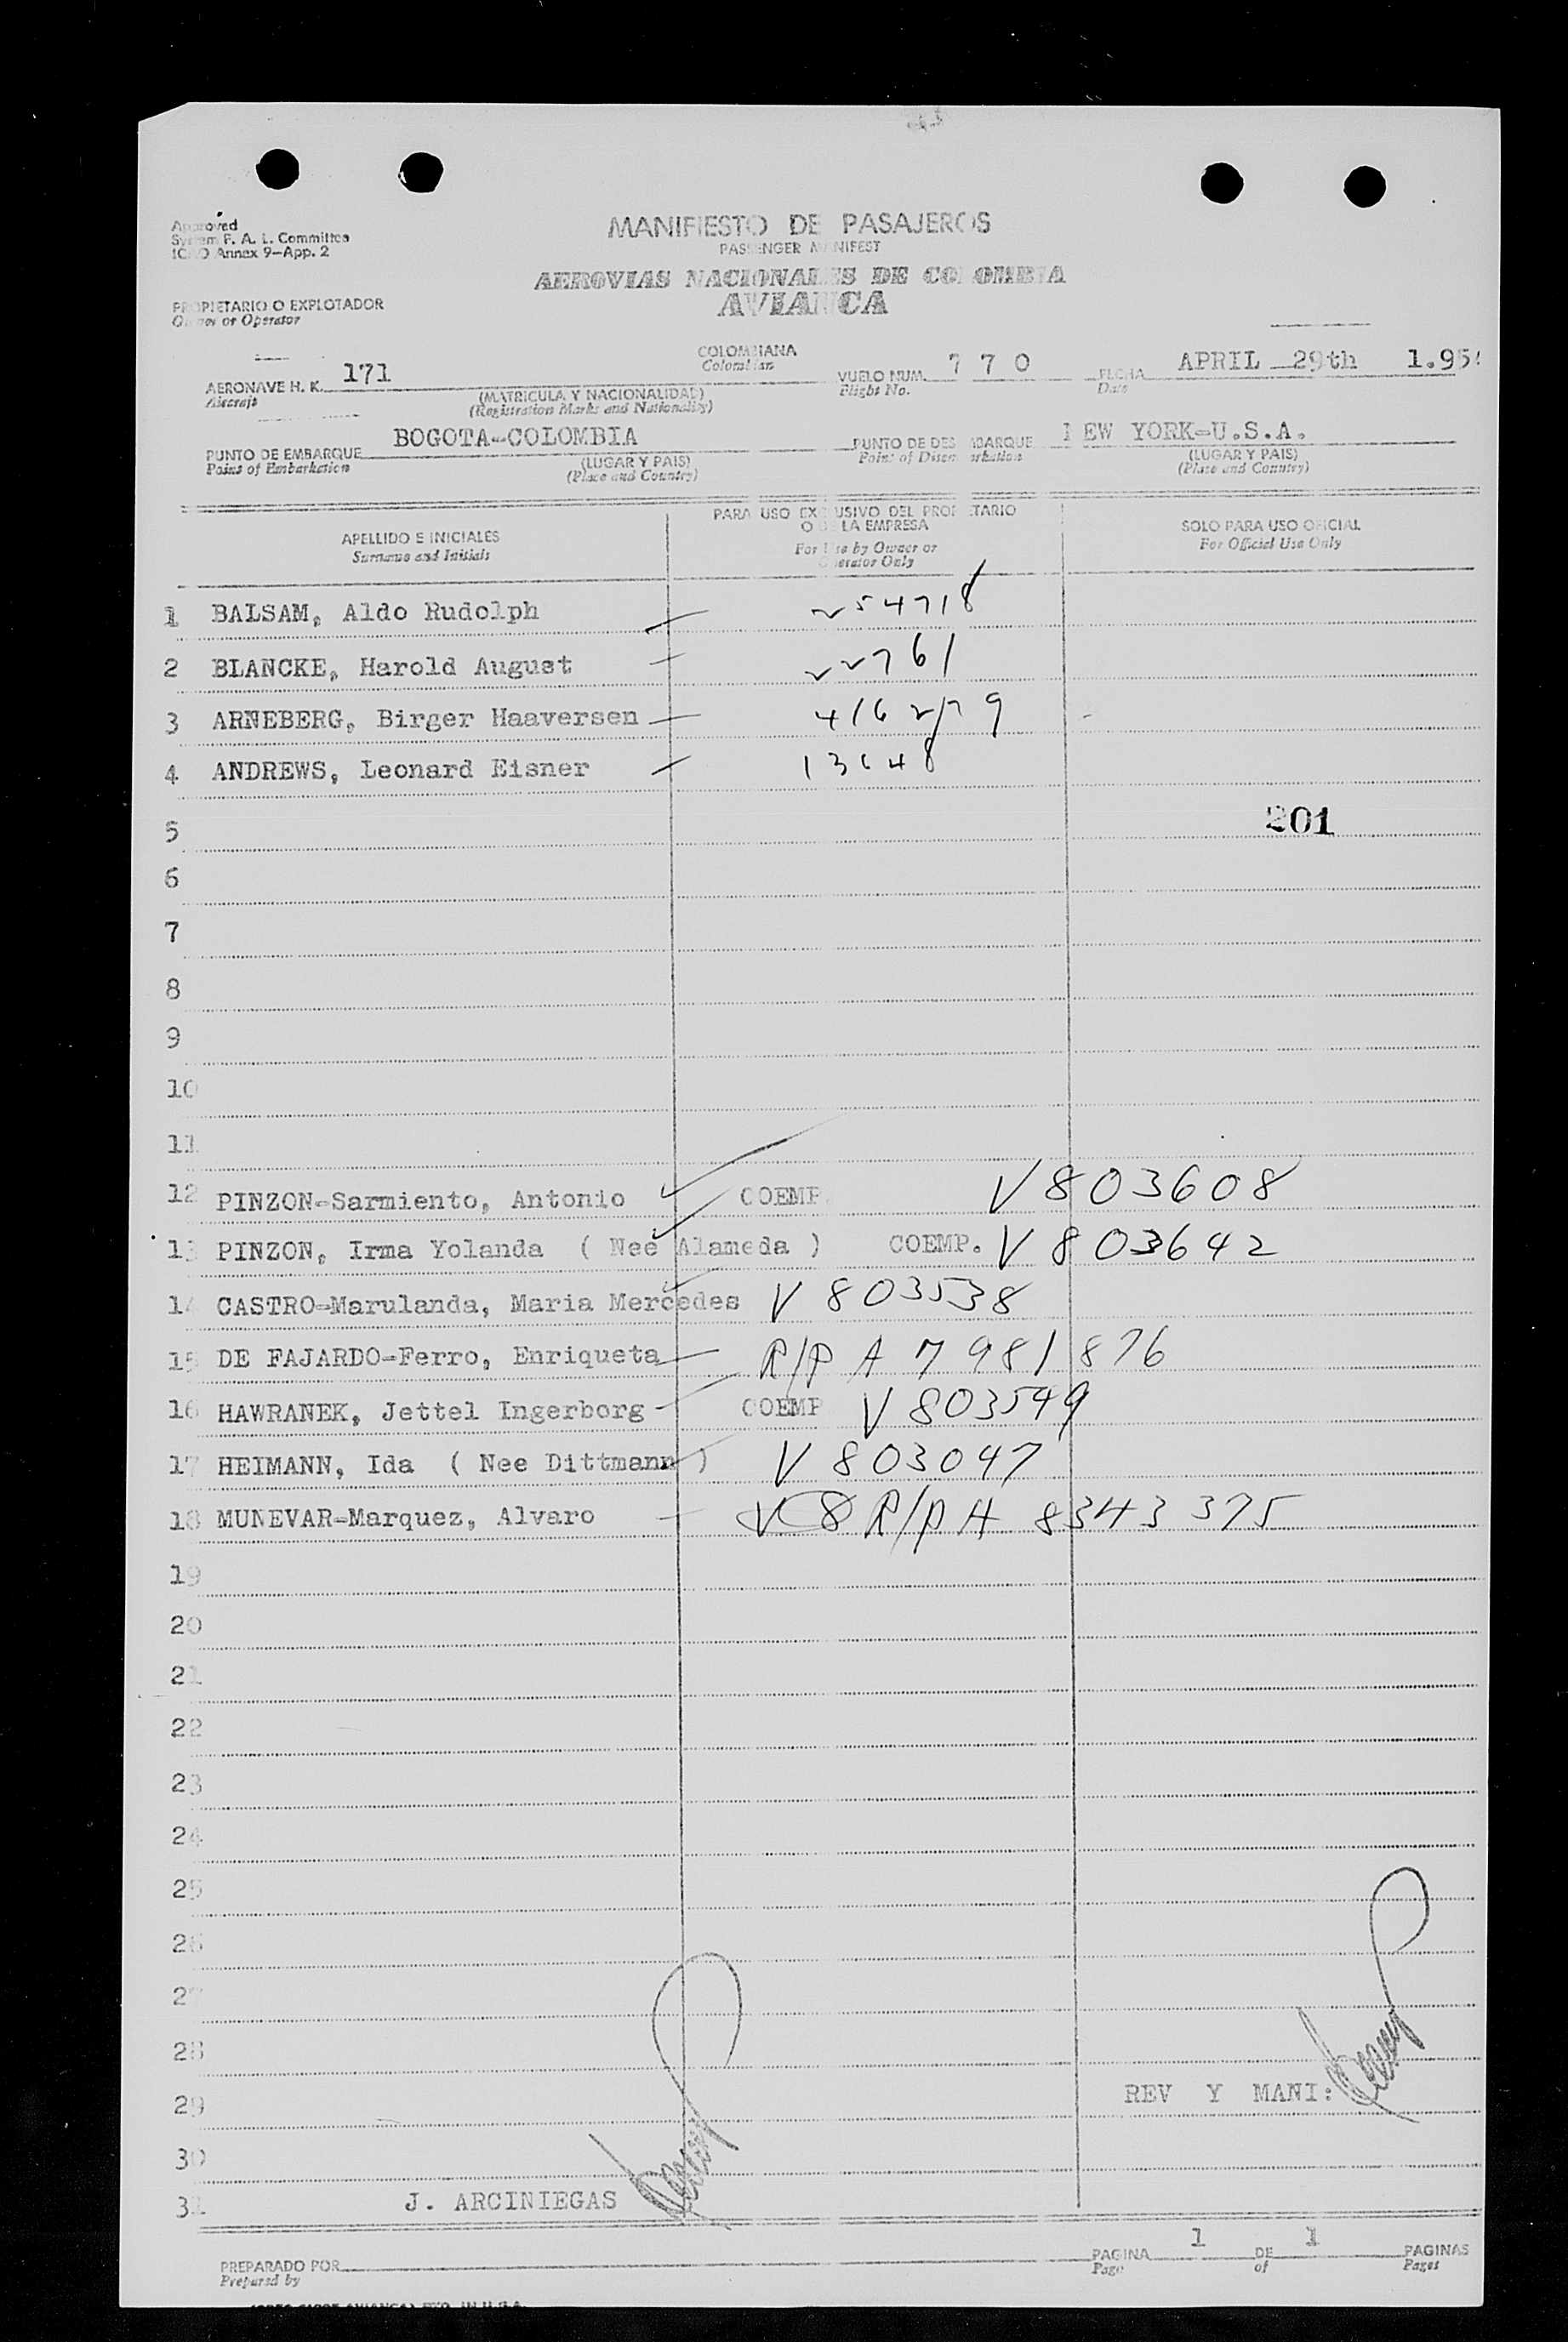 Approved
System F. A. L. Committee
ICAO Annex 9-App. 2
MANIFIESTO DE PASAJEROS
PASSENGER MANIFEST
AEROVIAS NACIONALES DE COLOMBIA
AVIANCA
PROPIETARIO O EXPLOTADOR
Owner or Operator
AERONAVE H. K. 171 COLOMBIANA VUELO NUM. 7 7 0 FECHA APRIL 29th
Aircraft Colombian Flight No. Date
(MATRICULA Y NACIONALIDAD)
(Registration Marks and Nationality)
PUNTO DE EMBARQUE BOGOTA-COLOMBIA PUNTO DE DESEMBARQUE NEW YORK-U.S.A.
Point of Embarkation (LUGAR Y PAIS) Point of Disembarkation (LUGAR Y PAIS)
(Place and Country) (Place and Country)
APELLIDO E INICIALES PARA USO EXCLUSIVO DEL PROPIETARIO SOLO PARA USO OFICIAL
Surname and Initials O DE LA EMPRESA For Official Use Only
For Use by Owner or
Operator Only
1 BALSAM, Aldo Rudolph 254718
2 BLANCKE, Harold August 22761
3 ARNEBERG, Birger Haaversen
4 ANDREWS, Leonard Eisner 13648
5 201
6
7
8
9
10
11
12 PINZON-Sarmiento, Antonio COEMP. V 803608
13 PINZON, Irma Yolanda ( Nee Alameda ) COEMP. V 803642
14 CASTRO-Marulanda, Maria Mercedes V 803538
15 DE FAJARDO-Ferro, Enriqueta R/P A 7981876
16 HAWRANEK, Jettel Ingerborg COEMP V 803549
17 HEIMANN, Ida ( Nee Dittmann ) V 803047
18 MUNEVAR-Marquez, Alvaro V 8 R/P A 8343375
19
20
21
22
23
24
25
26
27
28
29 REV Y MANI:
30
31 J. ARCINIEGAS
PREPARADO POR PAGINA 1 DE 1 PAGINAS
Prepared by Page of Pages